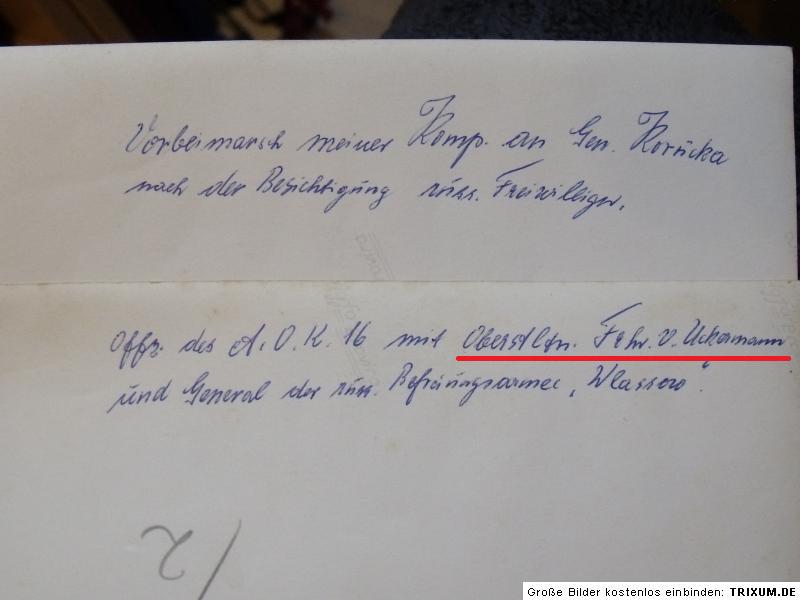 Vorbeimarsch meiner Komp. an Gen. Korücka
nach der Besichtigung russ. Freiwilliger.
Offz. des A.O.K. 16 mit Oberstltn. Frhr. v. Uckermann
und General der russ. Befreiungsarmee „Wlassow".
/2
Große Bilder kostenlos einbinden: TRIXUM.DE